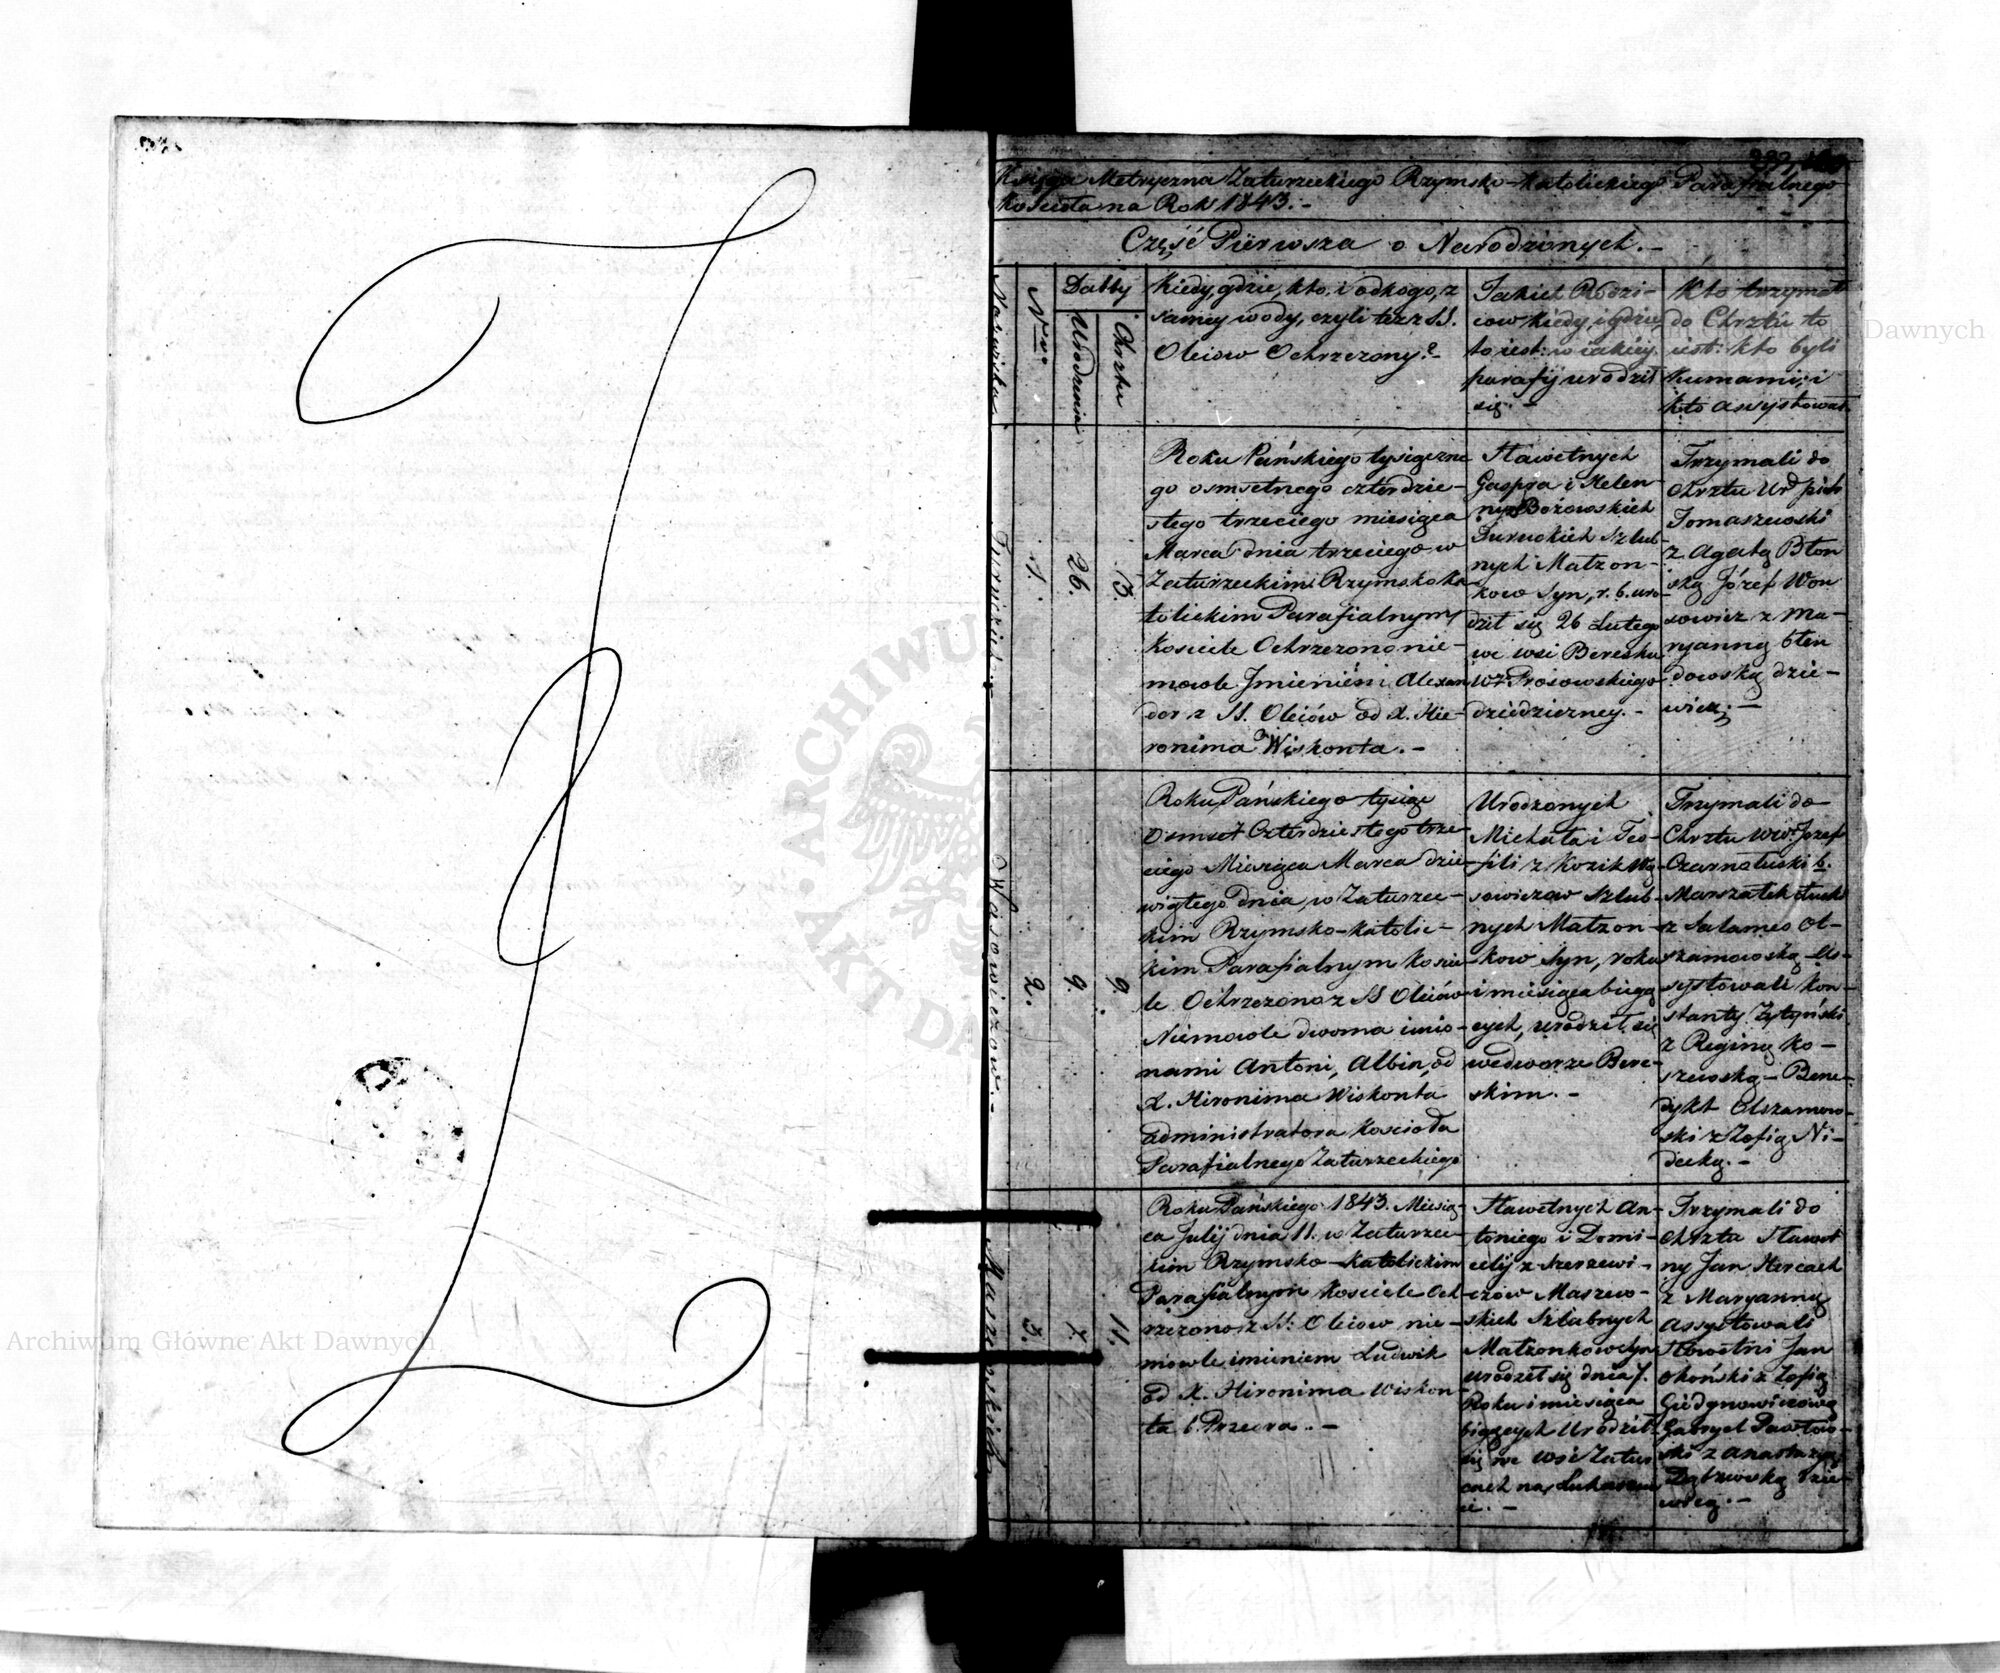 Księga Metryczna Zaturzeckiego Rzymsko-Katolickiego Parafialnego
Kościoła na Rok 1843.-
Część Pierwsza o Narodzonych.-
Nazwiska
Nro:
Datty
Urodzenia
Chrztu
Kiedy, gdzie, kto, i od kogo, z
samey wody, czyli też z SS.
Oleiow Ochrzczony?-
Jakich Rodzi-
cow kiedy, i gdzie,
to iest: w iakiey
parafij urodził
się.-
Kto trzymał
do Chrztu to
iest: kto byli
kumami, i
kto assystował
1.
26.
3.
Roku Pańskiego tysiączne
go osmsetnego czterdzie-
stego trzeciego miesiąca
Marca dnia trzeciego w
Zaturzeckim Rzymsko Ka
tolickim Parafialnym
Kosciele Ochrzczono nie-
mowle Jmieniem Alexan
der z SS. Oleiów od X. Hie-
ronima Wiskonta.-
Sławetnych
Gaspra i Helen-
ny z Bożowskich
Szlub-
nych Małzon-
kow Syn, r. b. uro-
dził się 26 Lutego
we wsi Beresku
W. Prosowskiego
dziedziczney.-
Trzymali do
Chrztu Urd
Tomaszewski
z Agatą Błon
ską Józef Won
sowicz z Ma-
ryanną Głem
dowską dzie-
wicą.-
Wąsowiczow.-
2.
9.
9.
Roku Pańskiego tysiąc
Osmset Czterdziestego trze-
ciego Miesiąca Marca dzie-
wiątego dnia, w Zaturzec-
kim Rzymsko-Katolic-
kim Parafialnym Koscie-
le Ochrzczono z SS Oleiów
Niemowle dwoma imio-
nami Antoni, Albin, od
X. Hironima Wiskonta
Administratora Kościoła
Parafialnego Zaturzeckiego
Urodzonych
Michała i Teo-
fili z Kozik Wą
sowiczow Szlub-
nych Małzon-
kow Syn, roku
i miesiąca bieżą
cych, urodził się
we dworze Bere-
skim.-
Trzymali do
Chrztu WW: Jozef
Czarnołuski b.
Marszałek Łucki
z Salomeą Ol-
szamowską As-
systowali Kon-
stanty Żytyński
z Reginą Ko-
szewską - Bene-
dykt Olszamow-
ski z Zofią Ni-
decką.-
Maszewskich
3.
7.
11.
Roku Pańskiego 1843. Miesią-
ca Julij dnia 11. w Zaturzec-
kim Rzymsko-Katolickim
Parafialnym Kosciele Och-
rzczono z SS: Oleiow nie-
mowle imieniem Ludwik
od X. Hironima Wiskon-
ta b. Przeora.-
Sławetnych An-
toniego i Domi-
celij z
czów Maszew-
skich Szlubnych
Małzonkow Syn
urodził się dnia 7.
Roku i miesiąca
bieżących Urodził
się we wsi Zatur
cach na
Trzymali do
Chrzta Sławet
ny Jan Hercach
z Maryanną
Assystowali
Sławetni Jan
z Zofią
Giedgnowiczową
Gabryel Pawłow-
ski z Anastazią
dzie-
wicą.-
ARCHIWUM
AKT DAWNYCH
Archiwum Główne Akt Dawnych
Archiwum Główne Akt Dawnych